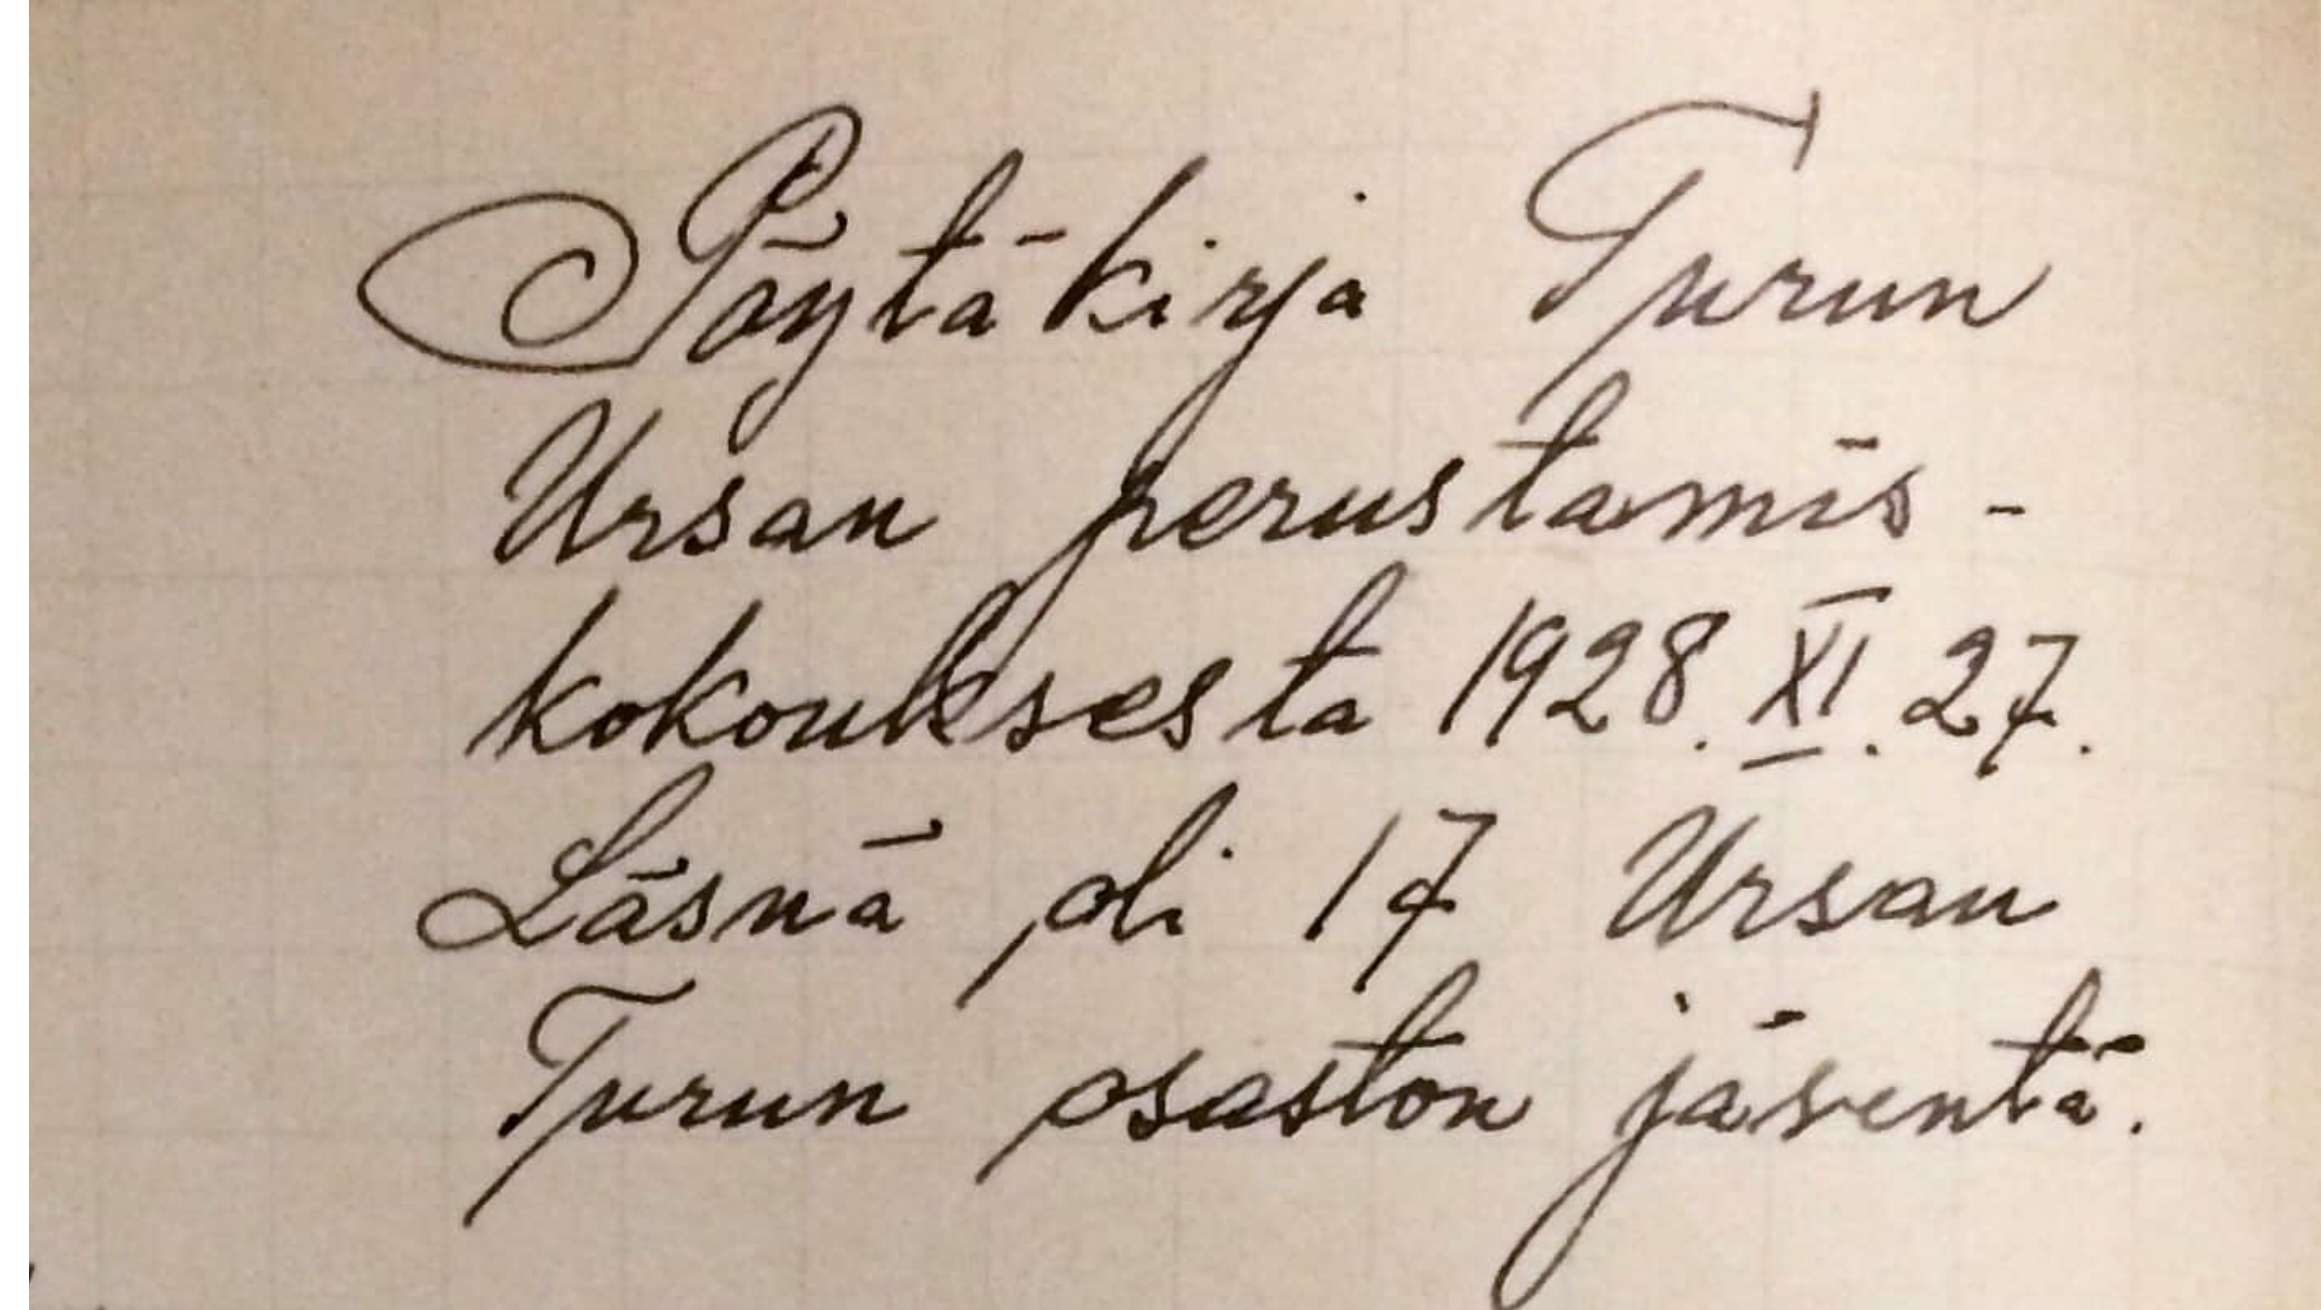 Pöytäkirja Turun
Ursan perustamis-
kokouksesta 1928. XI. 27.
Läsnä oli 17 Ursan
Turun osaston jäsentä.